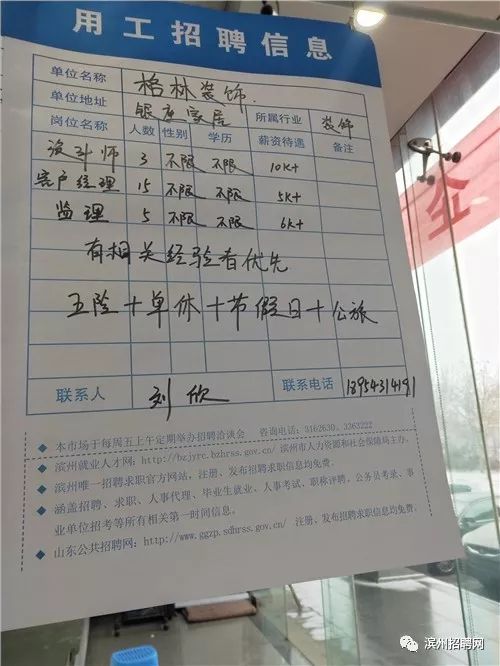 用工招聘信息
单位名称 格林装饰
单位地址 银座家居 所属行业 装饰
岗位名称 人数 性别 学历 薪资待遇 备注
设计师 3 不限 不限 10K+
客户经理 15 不限 不限 5K+
监理 5 不限 不限 6K+
有相关经验者优先
五险+单休+节假日+公旅
联系人 刘欣 联系电话
◆ 本市场于每周五上午定期举办招聘洽谈会 咨询电话：3162630、3363222
◆ 滨州就业人才网：http://bzjyrc.bzhrss.gov.cn/ 滨州市人力资源和社会保障局主办，
滨州唯一招聘求职官方网站，注册、发布招聘求职信息均免费。
◆ 涵盖招聘、求职、人事代理、毕业生就业、人事考试、职称评聘、公务员考录、事
业单位招考等所有相关第一时间信息。
◆ 山东公共招聘网：http://www.ggzp.sdhrss.gov.cn/ 注册、发布招聘求职信息均免费。
滨州招聘网